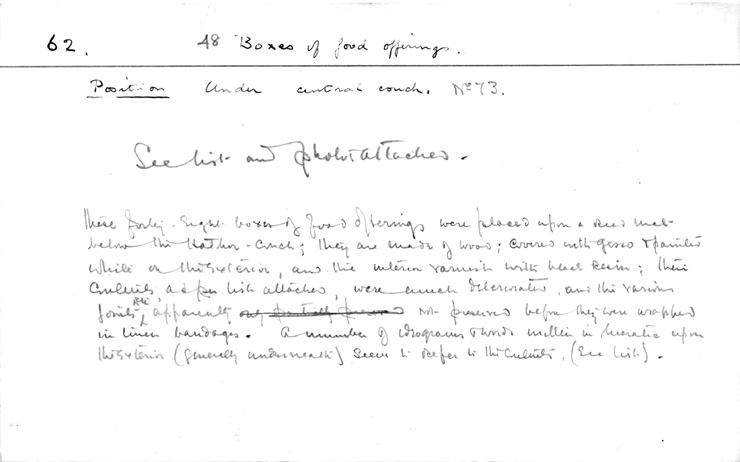 62. 48 Boxes of food offerings.
Position Under central couch. No 73.
See list and photo attached.
These forty-eight boxes of food offerings were placed upon a reed mat
below the Hathor-Couch; they are made of wood; covered with gesso & painted
white on the exterior, and the interior varnish with black resin; their
Contents, as per list attached, were much deteriorated, and the various
joints, etc, apparently not preserved before they were wrapped
in linen bandages. A number of ideograms & words written in hieratic upon
the exterior (generally underneath) seem to refer to the contents, (See list).